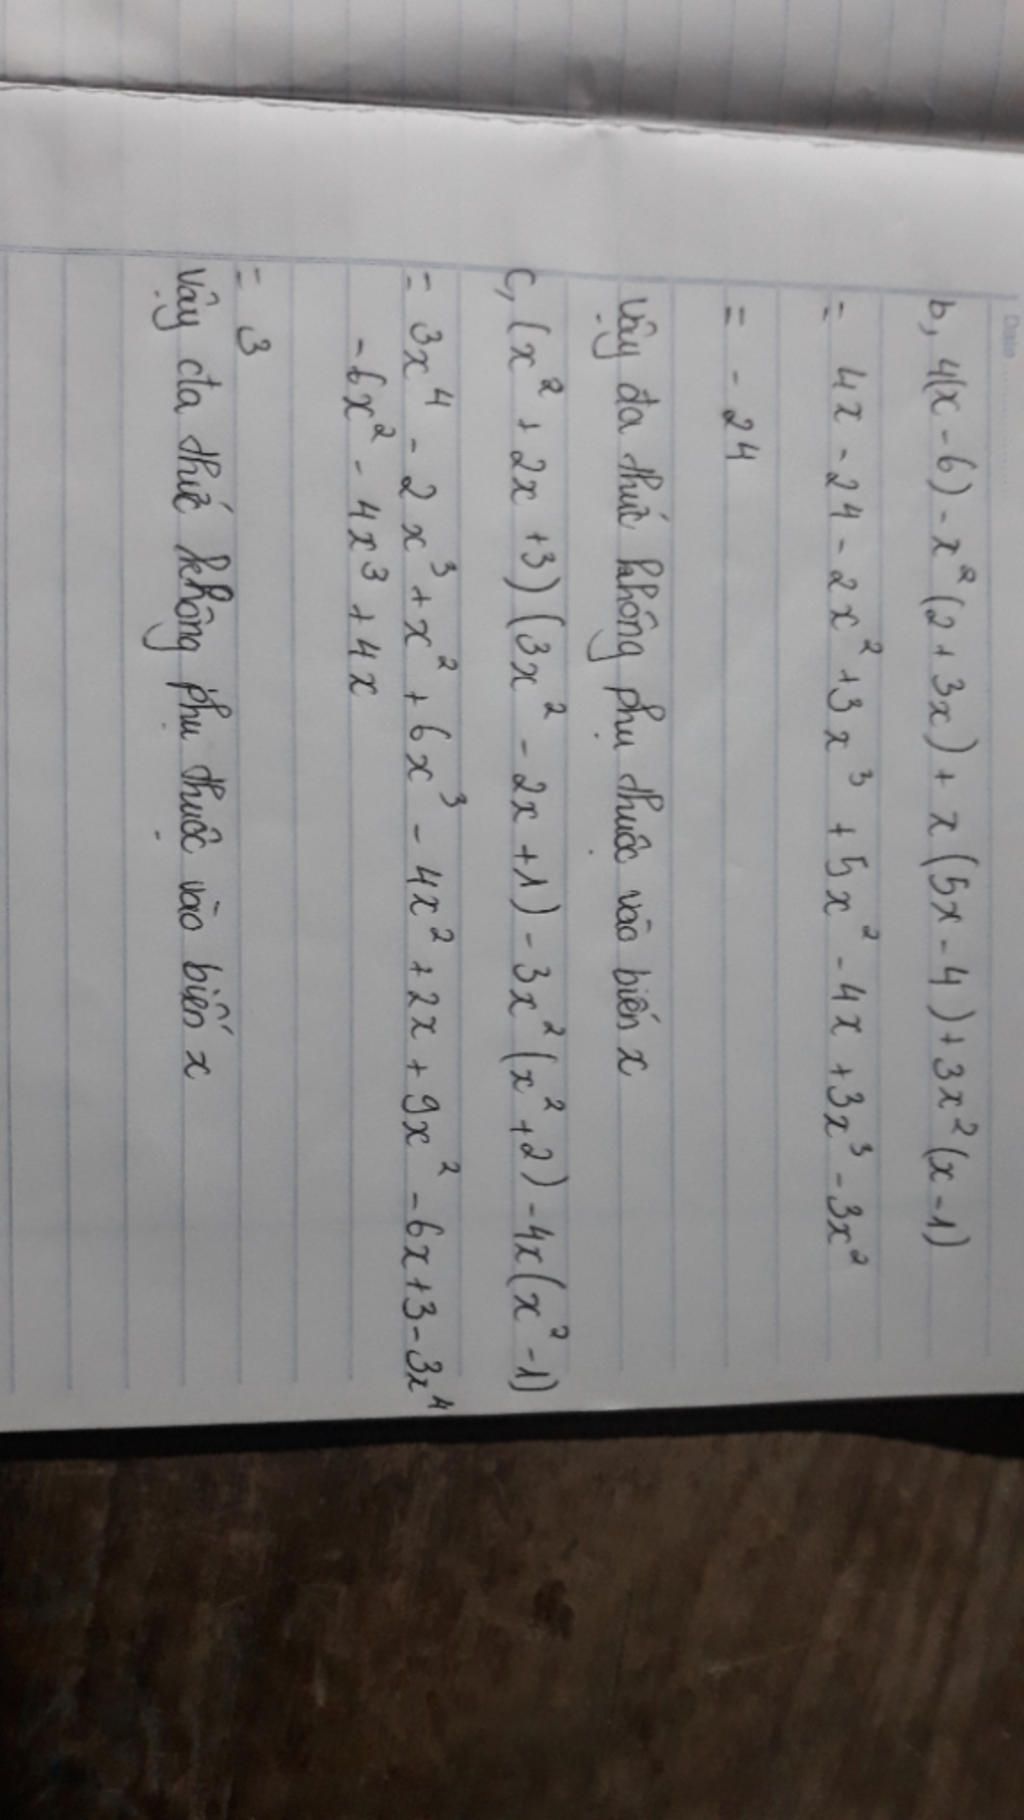 Date
b, 4(x - 6) - x² (2 + 3x) + x (5x - 4) + 3x² (x - 1)
= 4x - 24 - 2x² + 3x³ + 5x² - 4x + 3x³ - 3x²
= - 24
Vậy đa thức không phụ thuộc vào biến x
c, (x² + 2x + 3) (3x² - 2x + 1) - 3x² (x² + 2) - 4x (x² - 1)
= 3x⁴ - 2x³ + x² + 6x³ - 4x² + 2x + 9x² - 6x + 3 - 3x⁴
- 6x² - 4x³ + 4x
= 3
Vậy đa thức không phụ thuộc vào biến x